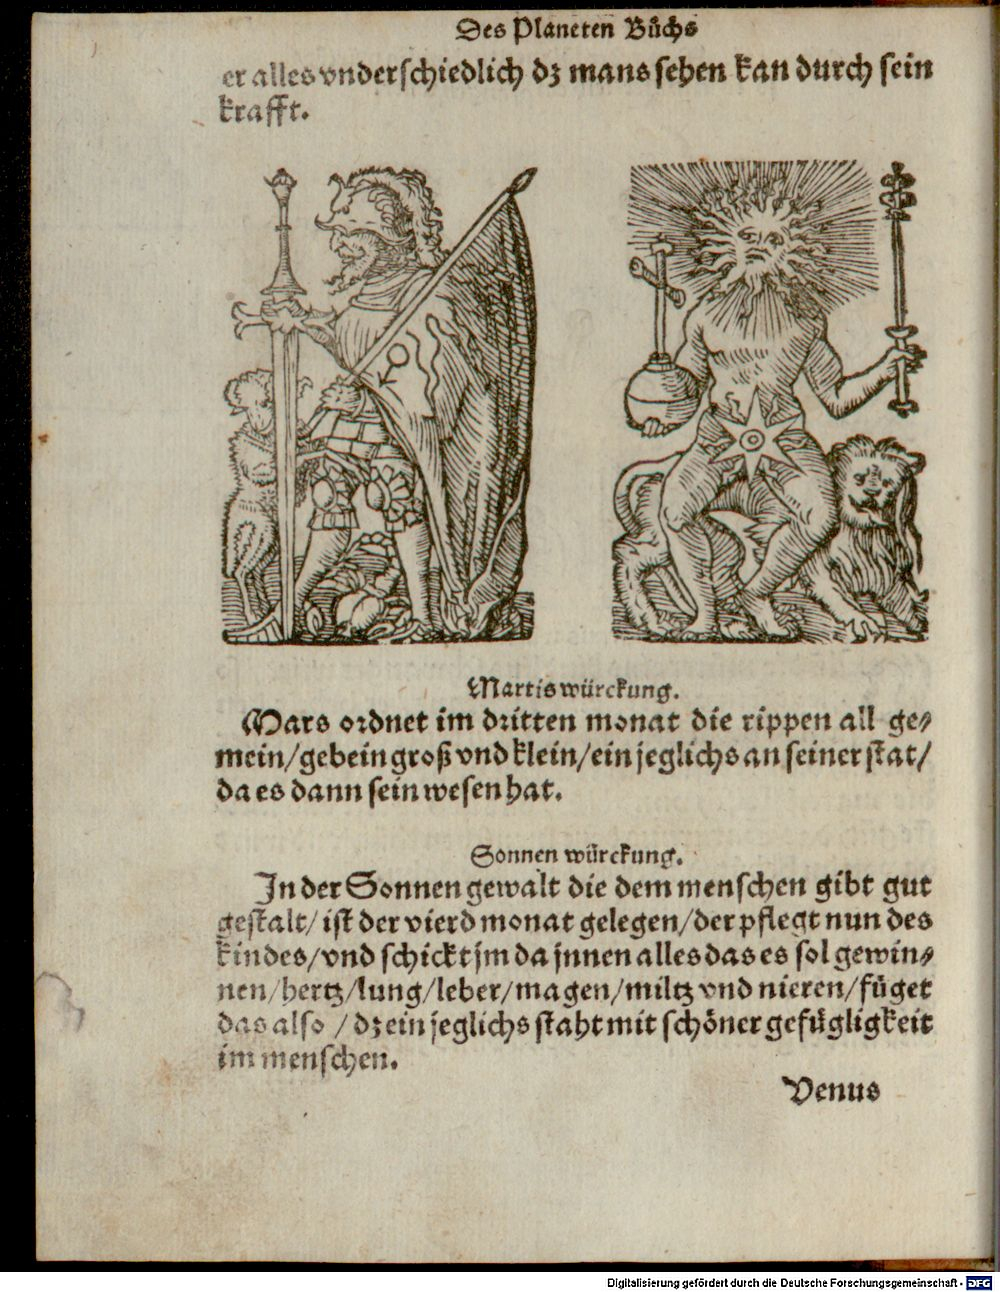 Des Planeten Bůchs
er alles vnderschiedlich dz mans sehen kan durch sein
krafft.
Martis würckung.
Mars ordnet im dritten monat die rippen all ge⸗
mein/gebein groß vnd klein/ein jeglichs an seiner stat/
da es dann sein wesen hat.
Sonnen würckung.
In der Sonnen gewalt die dem menschen gibt gut
gestalt/ ist der vierd monat gelegen/der pflegt nun des
kindes/vnd schickt jm da jnnen alles das es sol gewin⸗
nen/hertz/lung/leber/magen/miltz vnd nieren/füget
das also / dz ein jeglichs staht mit schöner gefügligkeit
im menschen.
Venus
Digitalisierung gefördert durch die Deutsche Forschungsgemeinschaft - DFG